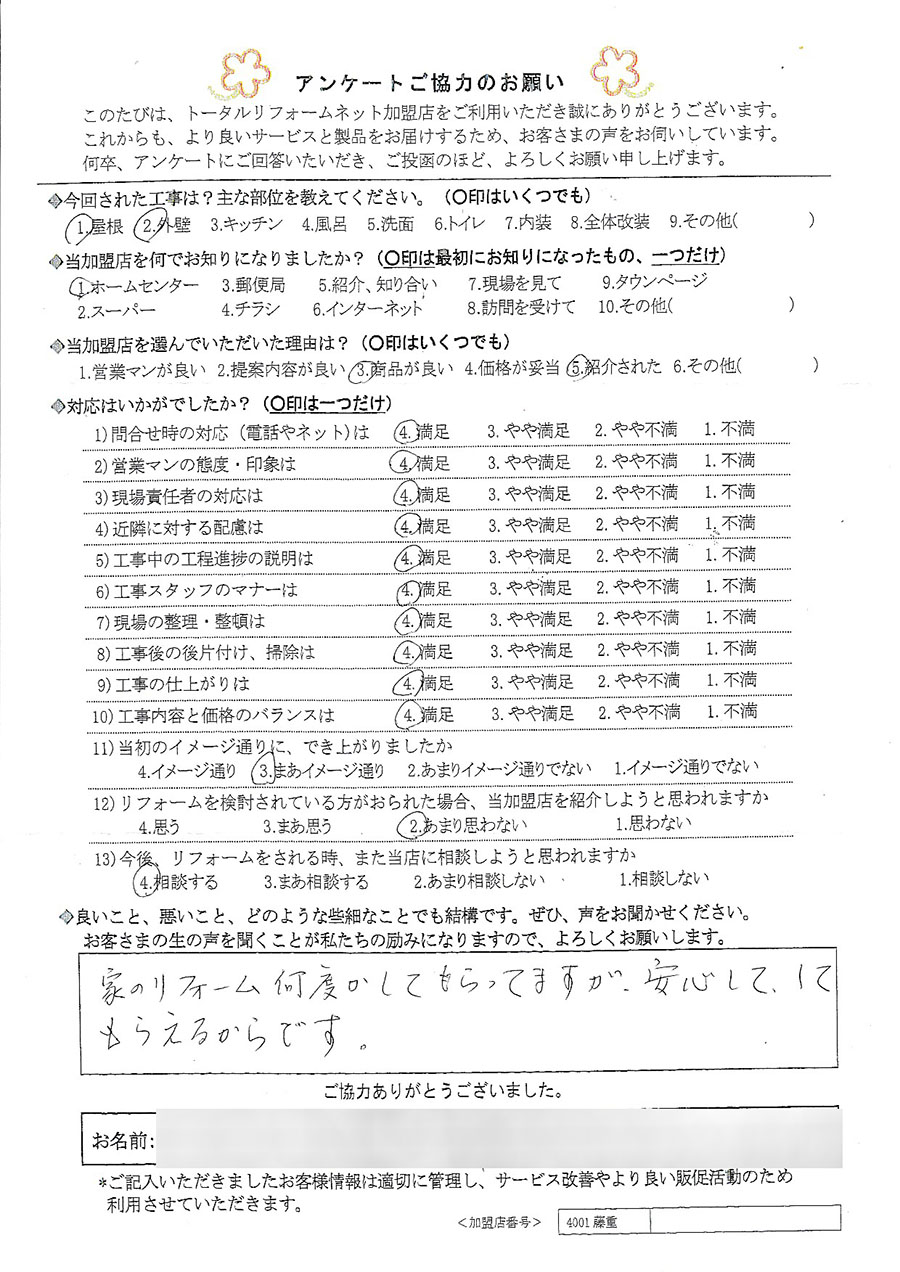 アンケートご協力のお願い
このたびは、トータルリフォームネット加盟店をご利用いただき誠にありがとうございます。
これからも、より良いサービスと製品をお届けするため、お客さまの声をお伺いしています。
何卒、アンケートにご回答いたいだき、ご投函のほど、よろしくお願い申し上げます。
◆今回された工事は？主な部位を教えてください。（〇印はいくつでも）
1.屋根 2.外壁 3.キッチン 4.風呂 5.洗面 6.トイレ 7.内装 8.全体改装 9.その他( )
◆当加盟店を何でお知りになりましたか？（〇印は最初にお知りになったもの、一つだけ）
1.ホームセンター 3.郵便局 5.紹介、知り合い 7.現場を見て 9.タウンページ
2.スーパー 4.チラシ 6.インターネット 8.訪問を受けて 10.その他( )
◆当加盟店を選んでいただいた理由は？（〇印はいくつでも）
1.営業マンが良い 2.提案内容が良い 3.商品が良い 4.価格が妥当 5.紹介された 6.その他( )
◆対応はいかがでしたか？（〇印は一つだけ）
1)問合せ時の対応（電話やネット)は 4.満足 3.やや満足 2.やや不満 1.不満
2)営業マンの態度・印象は 4.満足 3.やや満足 2.やや不満 1.不満
3)現場責任者の対応は 4.満足 3.やや満足 2.やや不満 1.不満
4)近隣に対する配慮は 4.満足 3.やや満足 2.やや不満 1.不満
5)工事中の工程進捗の説明は 4.満足 3.やや満足 2.やや不満 1.不満
6)工事スタッフのマナーは 4.満足 3.やや満足 2.やや不満 1.不満
7)現場の整理・整頓は 4.満足 3.やや満足 2.やや不満 1.不満
8)工事後の後片付け、掃除は 4.満足 3.やや満足 2.やや不満 1.不満
9)工事の仕上がりは 4.満足 3.やや満足 2.やや不満 1.不満
10)工事内容と価格のバランスは 4.満足 3.やや満足 2.やや不満 1.不満
11)当初のイメージ通りに、でき上がりましたか
4.イメージ通り 3.まあイメージ通り 2.あまりイメージ通りでない 1.イメージ通りでない
12)リフォームを検討されている方がおられた場合、当加盟店を紹介しようと思われますか
4.思う 3.まあ思う 2.あまり思わない 1.思わない
13)今後、リフォームをされる時、また当店に相談しようと思われますか
4.相談する 3.まあ相談する 2.あまり相談しない 1.相談しない
◆良いこと、悪いこと、どのような些細なことでも結構です。ぜひ、声をお聞かせください。
お客さまの生の声を聞くことが私たちの励みになりますので、よろしくお願いします。
家のリフォーム何度かしてもらってますが、安心して、して
もらえるからです。
ご協力ありがとうございました。
お名前:
*ご記入いただきましたお客様情報は適切に管理し、サービス改善やより良い販促活動のため
利用させていただきます。
＜加盟店番号＞ 4001藤重